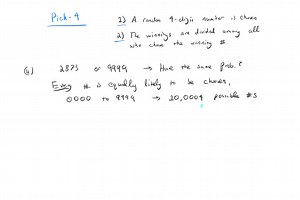 Pick-4
1) A random 4-digit number is chosen
2) The winnings are divided among all
who chose the winning #
a) 2373 or 9999 → Have the same prob.?
Every # is equally likely to be chosen,
0000 to 9999 → 10,000 possible #s